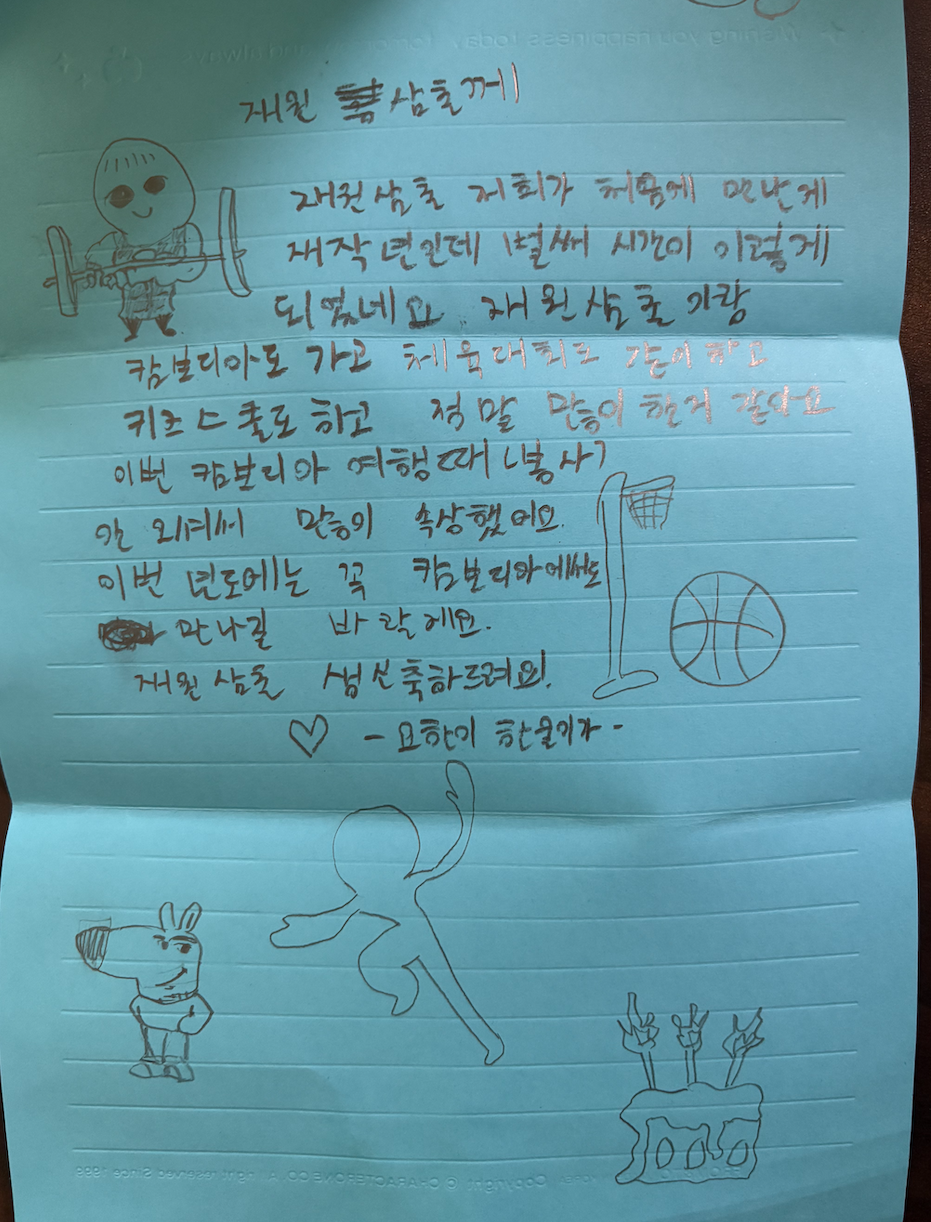 재원 삼촌께
재원삼촌 저희가 처음게 만난게
재작년인데 벌써 시간이 이렇게
되었네요 재원삼촌이랑
캄보디아도 가고 체육대회도 같이하고
키즈스쿨도 하고 정말 많이 한거 같아요
이번 캄보디아 여행때 봉사
많이 속상했어요.
이번 년도에는 꼭 캄보디아에써도
만나길 바랄게요.
재원삼촌 생신축하드려요!
♡ - 요한이 한울이가 -